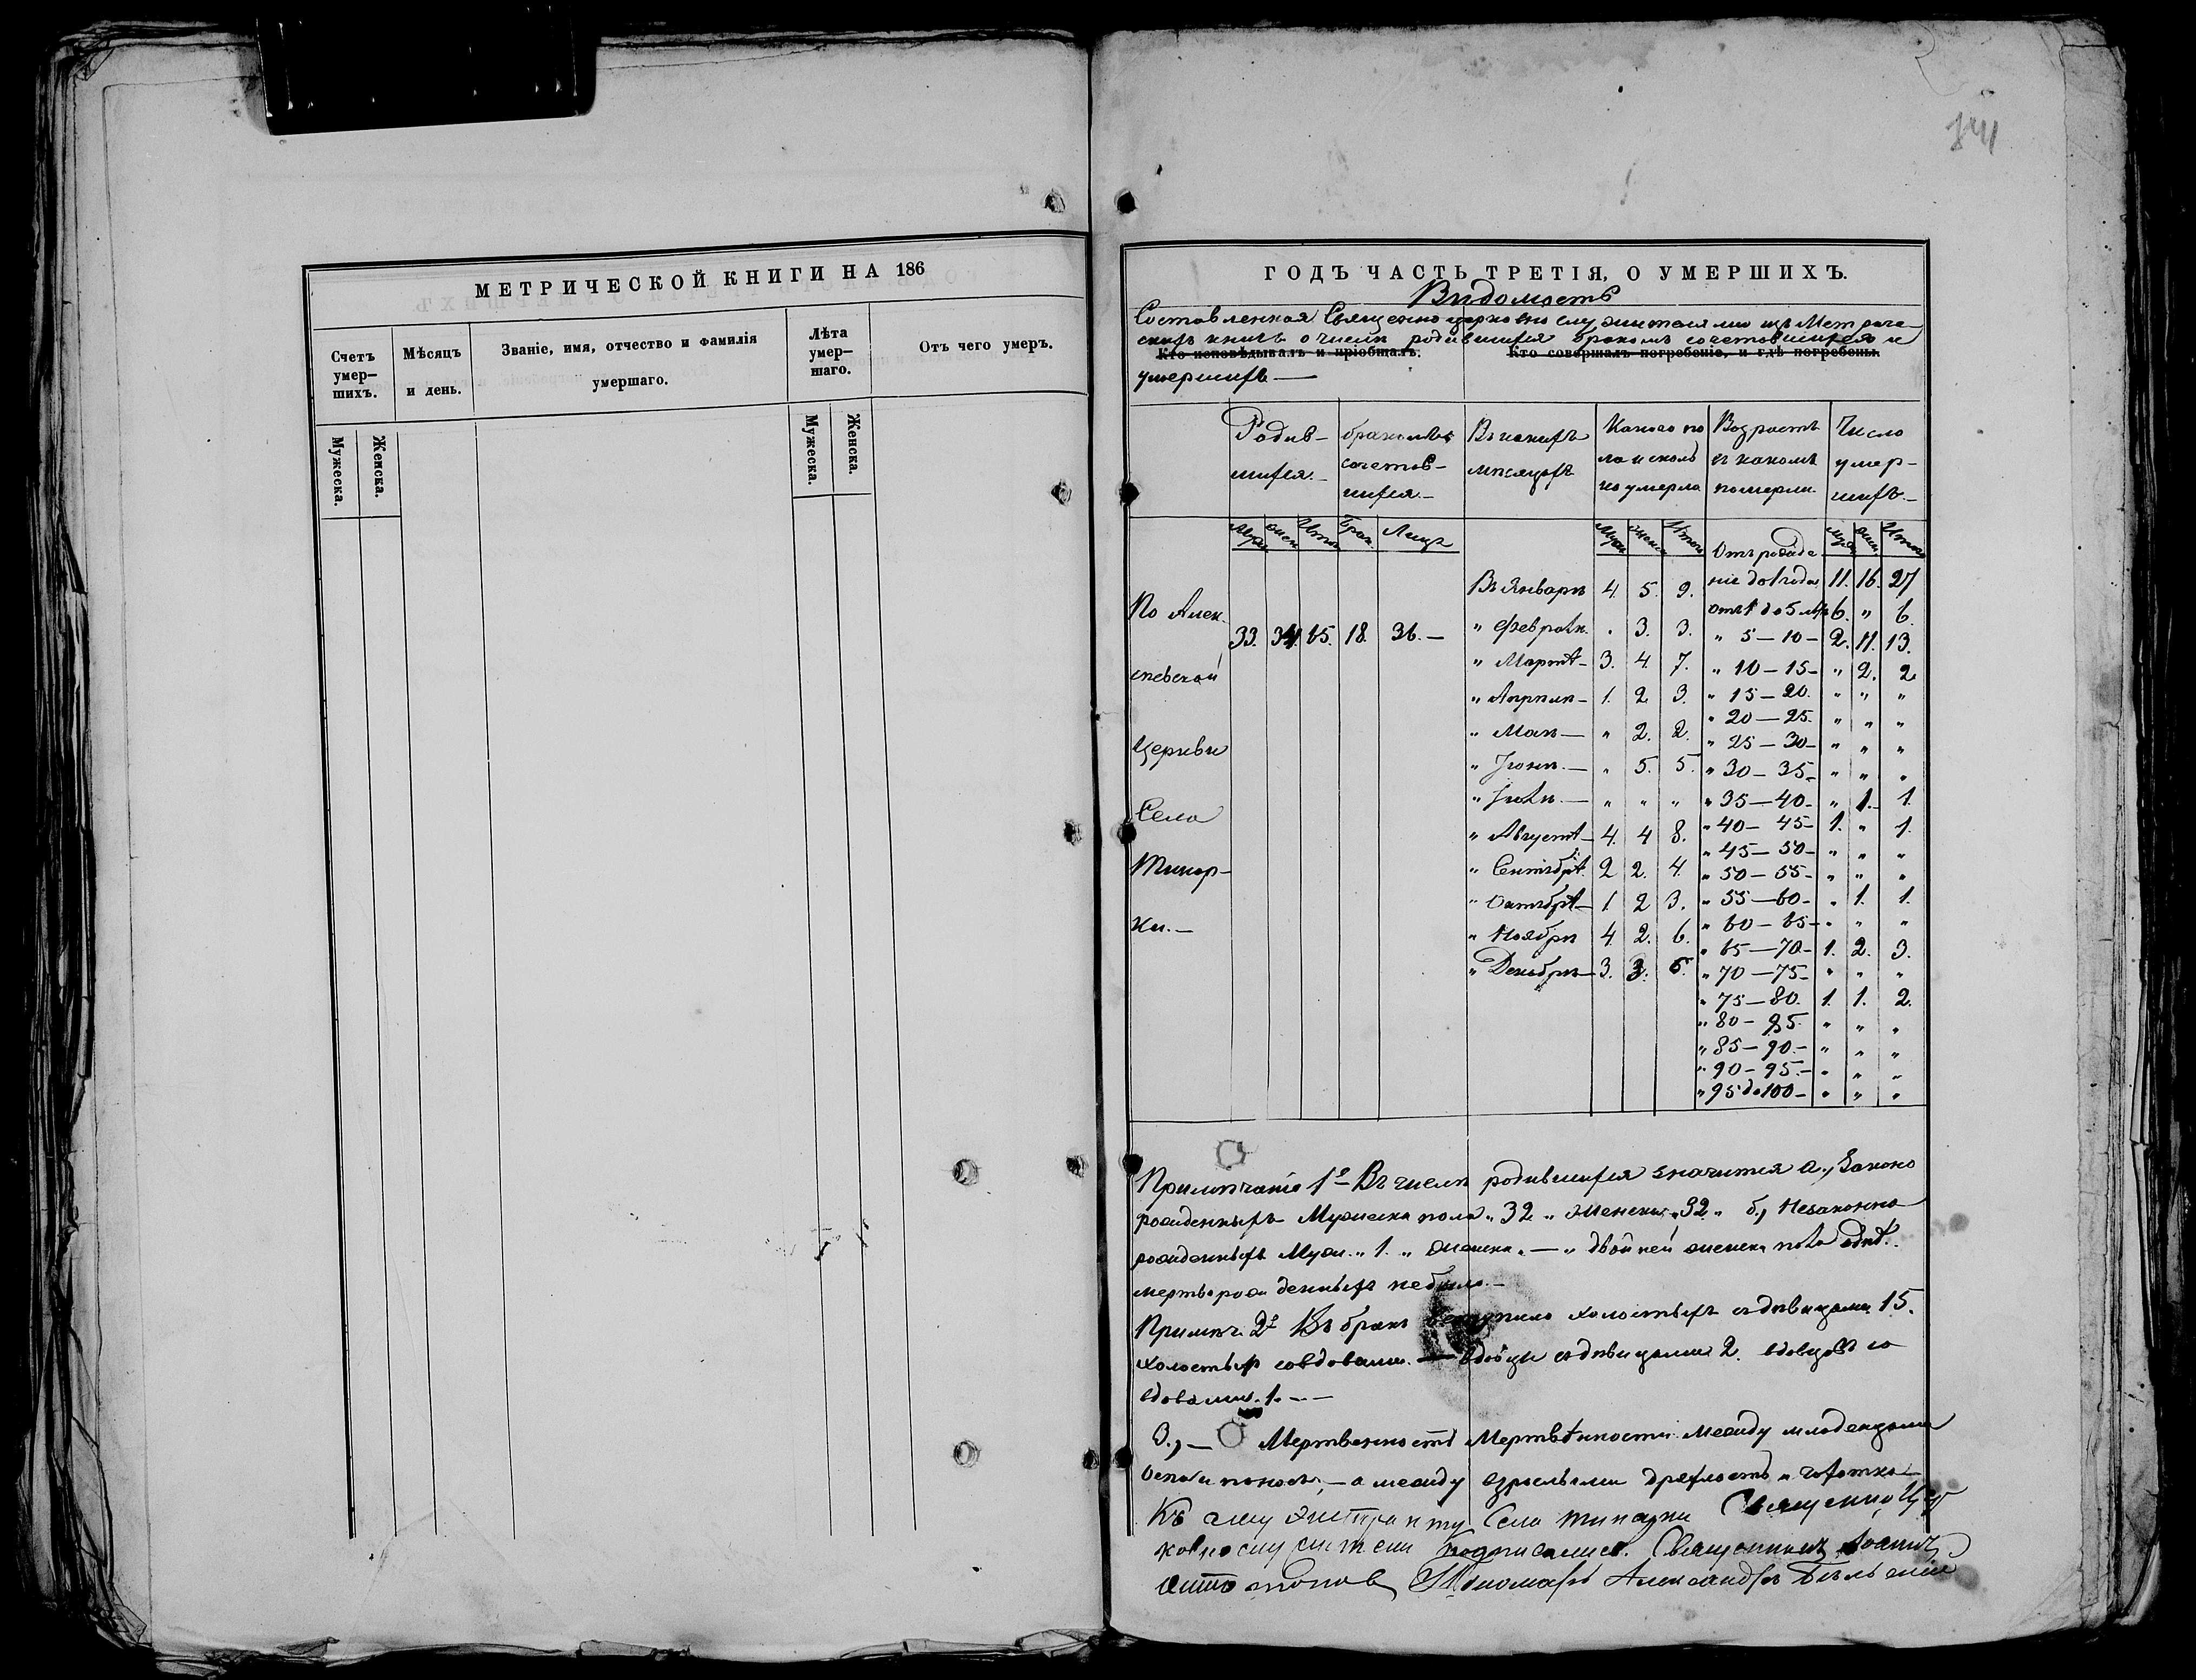 МЕТРИЧЕСКОЙ КНИГИ НА 186
Счетъ умер— шихъ.
Мѣсяцъ и день.
Званіе, имя, отчество и фамилія умершаго.
Лѣта умер— шаго.
Отъ чего умеръ.
Мужеска.
Женска.
Мужеска.
Женска.
ГОДЪ ЧАСТЬ ТРЕТІЯ, О УМЕРШИХЪ.
Вѣдомость
Составленная Священно церковно служителями изъ Метриче-
скихъ книгъ о числѣ родившихся бракомъ сочетовшихся и
Кто исповѣдывалъ и пріобщалъ.
Кто совершалъ погребеніе, и гдѣ погребены.
умершихъ —
Родив- шихся.-
бракомъ сочетов- шихся.-
Въ какихъ мѣсяцахъ
Какого по ла и сколь ко умерло
Возрастъ въ какомъ померли.
Число умер- шихъ.-
Муж. Жен. Итого Брак. Лицъ
Муж. Женс. Итого
Муж. Жен. Итого
По Алек
сѣевской
Церкви
Села
Тинар-
ки.-
33. 34. 65. 18. 36.-
Въ Январѣ 4. 5. 9.
" Февралѣ. " 3. 3.
" Мартѣ- 3. 4. 7.
" Апрѣлѣ- 1. 2. 3.
" Маѣ- " 2. 2.
" Іюнѣ.- " 5. 5.
" Іюлѣ.- " " "
" Августѣ- 4. 4. 8.
" Сентябрѣ. 2. 2. 4.
" Октябрѣ- 1. 2. 3.
" Ноябрѣ 4. 2. 6.
" Декабрѣ- 3. 3. 6.
Отъ рожде
ніе до 1 года 11. 16. 27
отъ 1 до 5 лѣтъ 6. " 6.
" 5-10- 2. 11. 13.
" 10-15- " 2. 2.
" 15-20. " " "
" 20-25. " " "
" 25-30- " " "
" 30-35- " " "
" 35-40- " 1.- 1.
" 40-45- 1. " 1.
" 45-50- " " "
" 50-55- " " "
" 55-60- " 1. 1.
" 60-65- " " "
" 65-70- 1. 2. 3.
" 70-75- " " "
" 75-80. 1. 1. 2.
" 80-85. " " "
" 85-90.- " " "
" 90-95.- " " "
" 95 до 100- " " "
Примѣчаніе 1е Въ числѣ родившихся значится а., Законо
рожденныхъ Мужеска пола " 32 " Женска " 32 " б., Незаконно
рожденныхъ Муж. " 1. " женска "-" двойней женска пола одна.
мертворожденныхъ небыло.-
Примѣч. 2е Въ бракъ вступило холостыхъ съ дѣвицами 15.
холостыхъ со вдовами.- вдовцы съ дѣвицами 2. вдовцовъ со
вдовами. 1.--
3.,- Мертвенность между младенцами
Оспа и поносъ,- а между взрослыми дряхлость и чахотка-
Къ сему Села Тинарки Священно Цер
ковно служители подписались. Священникъ Іоаннъ
Пономарь Александръ